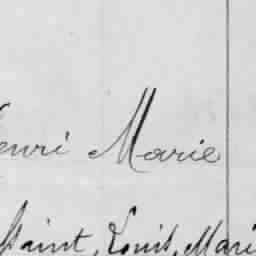 enri Marie
Saint, Louis, Mari